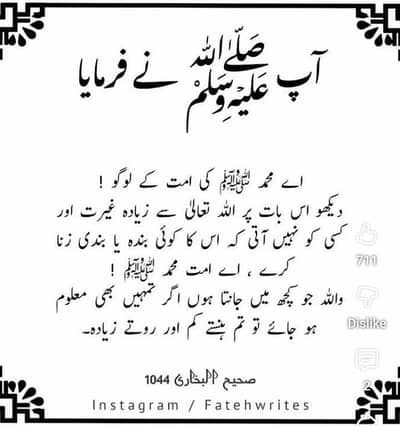 آپ صَلَّى اللہ عَلَيْهِ وَسَلَّمْ نے فرمایا
اے محمد ﷺ کی امت کے لوگو !
دیکھو اس بات پر اللہ تعالیٰ سے زیادہ غیرت اور
کسی کو نہیں آتی کہ اس کا کوئی بندہ یا بندی زنا
کرے ، اے امت محمد ﷺ !
واللہ جو کچھ میں جانتا ہوں اگر تمہیں بھی معلوم
ہو جائے تو تم ہنستے کم اور روتے زیادہ۔
711
Dislike
2
صحیح البخاری 1044
Instagram / Fatehwrites